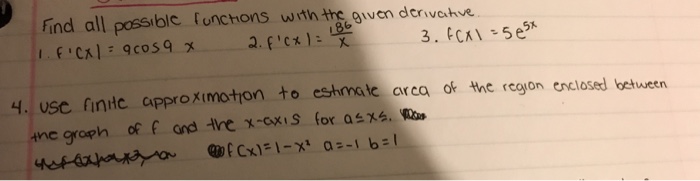 Find all possible functions with the given derivative.
1. f'(x) = 9cos9 x 2. f'(x) = 186/x 3. f(x) = 5e^5x
4. use finite approximation to estimate area of the region enclosed between
the graph of f and the x-axis for a≤x≤.
f(x)=1-x² a=-1 b=1